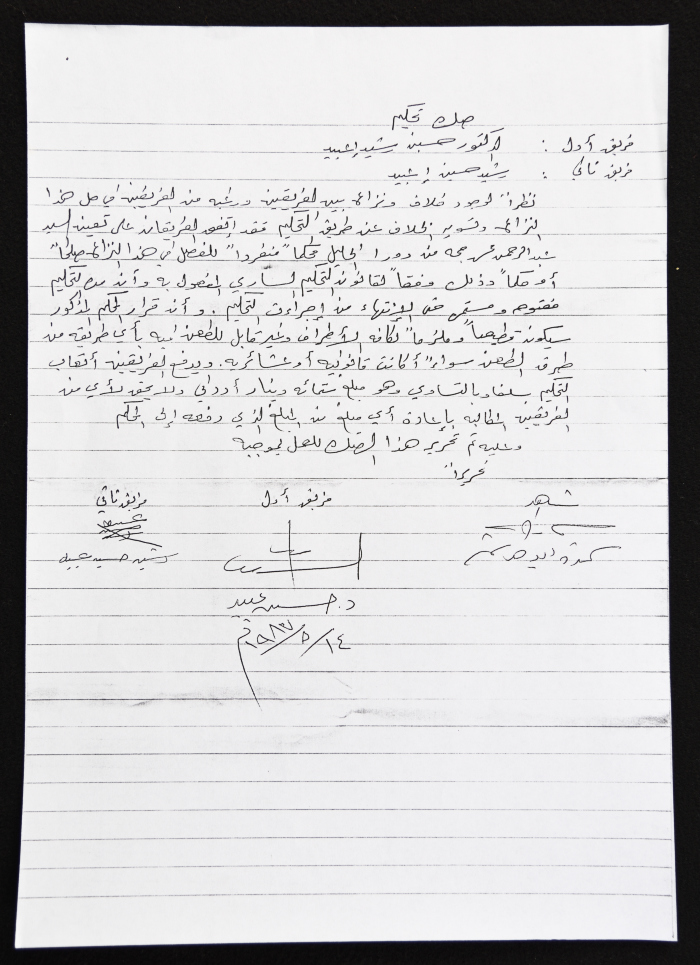 صك تحكيم
فريق أول : الدكتور حسين رشيد اعبيد
فريق ثاني : رشيد حسين إعبيد
نظراً لوجود خلاف ونزاع بين الفريقين ورغبه من الفريقين في حل هذا
النزاع وتسويه الخلاف عن طريق التحكيم فقد إتفق الفريقان على تعيين السيد
عبد الرحمن من دورا الخليل محكماً منفرداً للفصل في هذا النزاع صلحاً
أو حكماً وذلك وفقاً لقانون التحكيم الساري المفعول به وأن مده التحكيم
مفتوحه ومستمره حتى الإنتهاء من إجراءات التحكيم . وأن قرار الحكم المذكور
سيكون قطعياً وملزماً لكافه الأطراف وغير قابل للطعن فيه بأي طريقه من
طرق الطعن سواء أكانت قانونيه أو عشائريه. ويدفع الفريقين أتعاب
التحكيم سلفاً وبالتساوي وهو مبلغ ستمائه دينار أردني ولا يحق لأي من
الفريقين المطالبه بإعادة أي مبلغ من المبلغ الذي دفعه إلى المحكم
وعليه تم تحرير هذا الصك للعمل بموجبه
تحريراً
شاهد فريق أول فريق ثاني
رشيد حسين عبيد
د. حسين عبيد
١٤/٥/١٩٨٣م